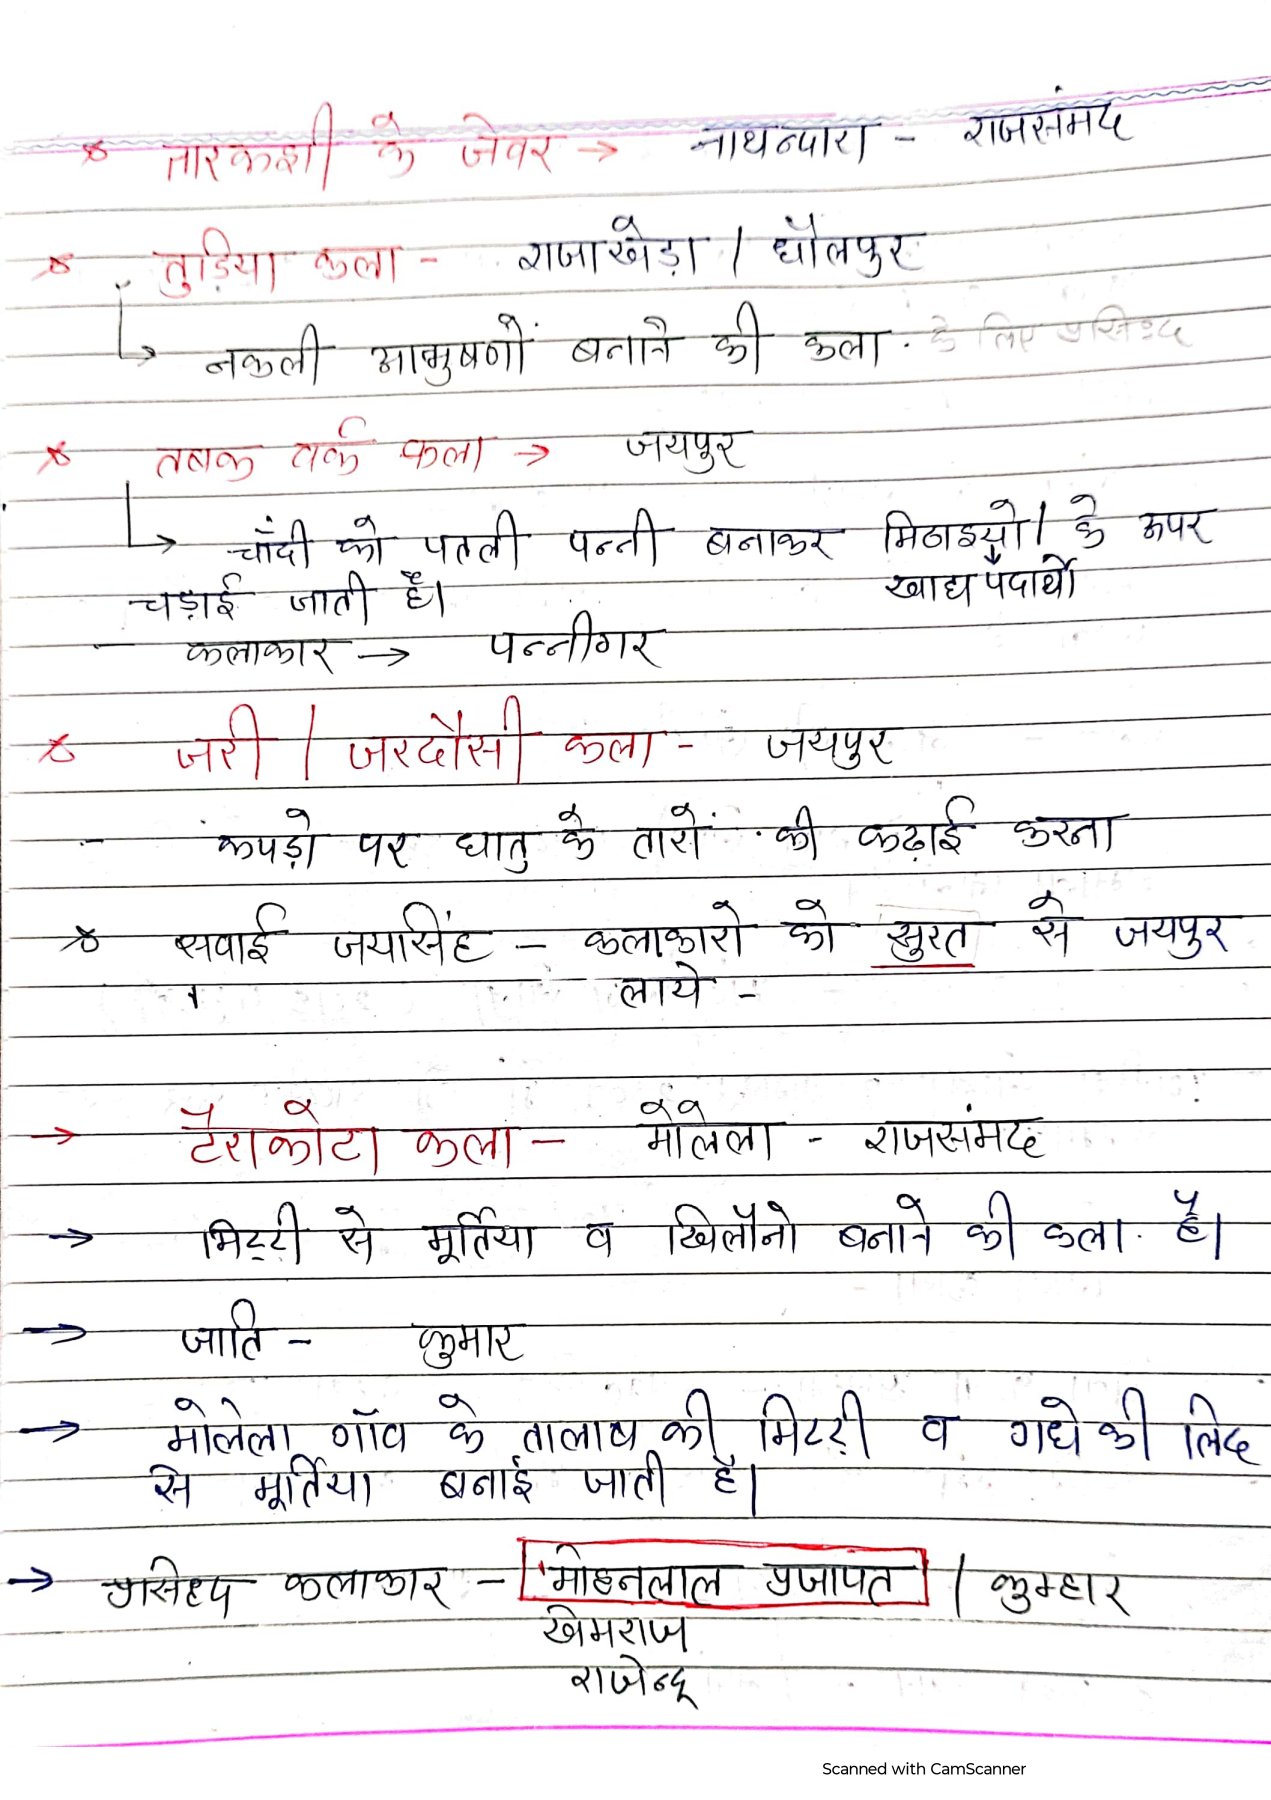 * तारकशी के जेवर → नाथद्वारा - राजसंमद
* तुड़िया कला - राजाखेड़ा / धौलपुर
↳ नकली आभुषणों बनाने की कला. के लिए प्रसिध्द
* तबक वर्क कला → जयपुर
↳ चाँदी को पतली पन्नी बनाकर मिठाइयो / के ऊपर
खाद्य पदार्थो
चड़ाई जाती है।
- कलाकार → पन्नीगर
* जरी / जरदौसी कला - जयपुर
- कपड़ो पर धातु के तारों की कढ़ाई करना
* सवाई जयसिंह - कलाकारो को सुरत से जयपुर
लाये -
→ टैराकोटा कला - मोलेला - राजसंमद
→ मिट्टी से मूर्तिया व खिलौनो बनाने की कला. है।
→ जाति - कुमार
→ मोलेला गाँव के तालाब की मिटटी व गधे की लिद
से मूर्तिया बनाई जाती है।
→ प्रसिध्द कलाकार - मोहनलाल प्रजापत / कुम्हार
खेमराज
राजेन्द्र
Scanned with CamScanner